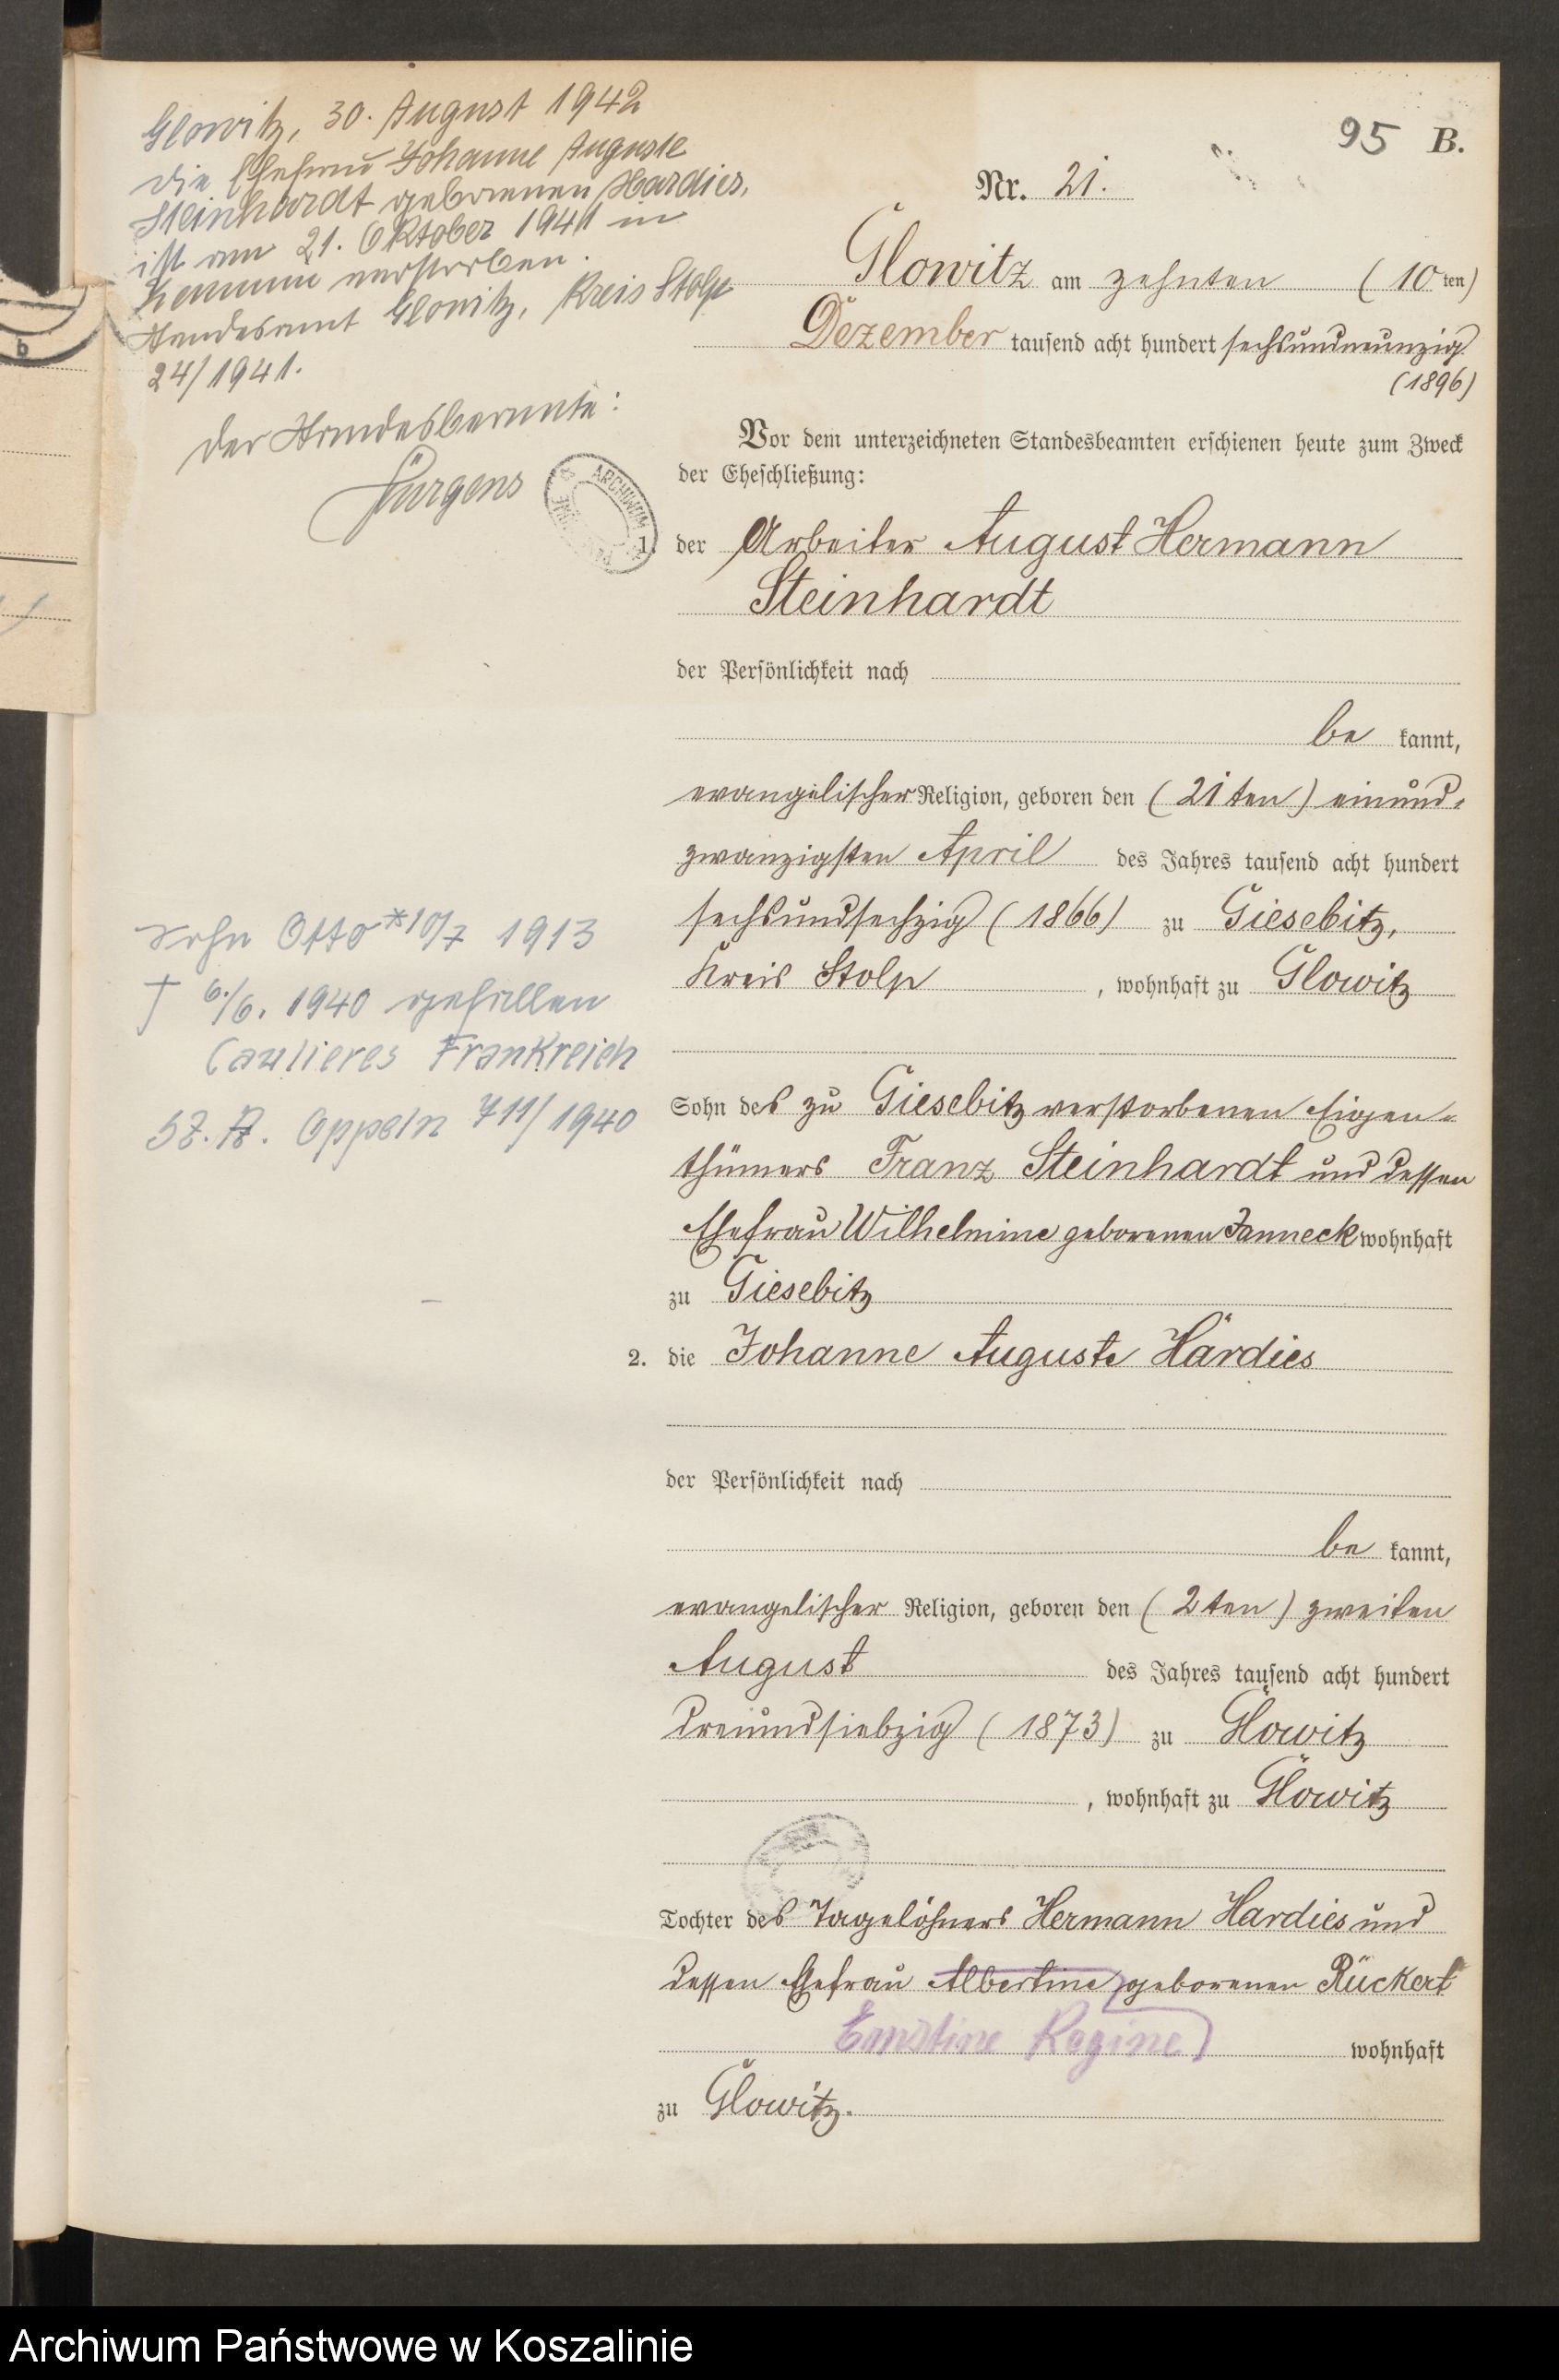 Glowitz, 30. August 1942
Die Ehefrau Johanne Auguste
Steinhardt geborenen Hardies,
ist am 21. Oktober 1941 in
verstorben.
Standesamt Glowitz, Kreis Stolp
24/1941.
Der Standesbeamte:
Jürgens
ARCHIWUM
95 B.
Nr. 21.
Glowitz am zehnten (10ten)
Dezember tausend acht hundert sechsundneunzig
(1896)
Vor dem unterzeichneten Standesbeamten erschienen heute zum Zweck
der Eheschließung:
1. der Arbeiter August Hermann
Steinhardt
der Persönlichkeit nach
be kannt,
evangelischer Religion, geboren den (21ten) einund-
zwanzigsten April des Jahres tausend acht hundert
sechsundsechzig (1866) zu Giesebitz,
Kreis Stolp, wohnhaft zu Glowitz
Sohn Otto *10/7 1913
† 6./6. 1940 gefallen
Caulieres Frankreich
Oppeln 711/1940
Sohn des zu Giesebitz verstorbenen Eigen-
thümers Franz Steinhardt und dessen
Ehefrau Wilhelmine geborenen Janneck wohnhaft
zu Giesebitz
2. die Johanne Auguste Hardies
der Persönlichkeit nach
be kannt,
evangelischer Religion, geboren den (2ten) zweiten
August des Jahres tausend acht hundert
dreiundsiebzig (1873) zu Glowitz
, wohnhaft zu Glowitz
Tochter des Tagelöhners Hermann Hardies und
dessen Ehefrau Albertine geborenen Rückert
Ernstine Regine
wohnhaft
zu Glowitz.
b
Archiwum Państwowe w Koszalinie